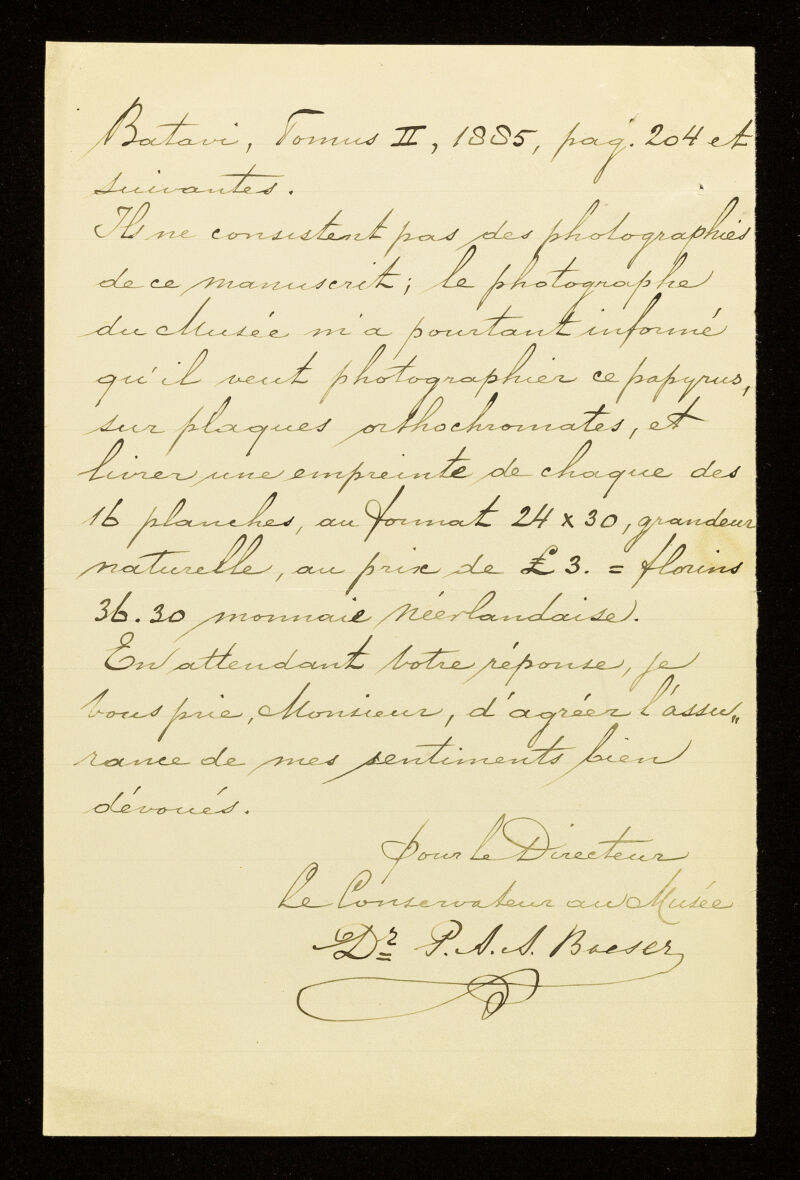 Batavi, Tomus II, 1885, pag. 204 et
suivantes.
Ils ne consistent pas des photographies
de ce manuscrit; le photographe
du Musée m'a pourtant informé
qu'il veut photographier ce papyrus,
sur plaques orthochromates, et
livrer une empreinte de chaque des
16 planches, au format 24 x 30, grandeur
naturelle, au prix de £ 3. = florins
36.30 monnaie Néerlandaise.
En attendant votre réponse, je
vous prie, Monsieur, d'agréer l'assu„
rance de mes sentiments bien
dévoués.
pour le Directeur
le Conservateur au Musée
Dr P. A. A. Boeser